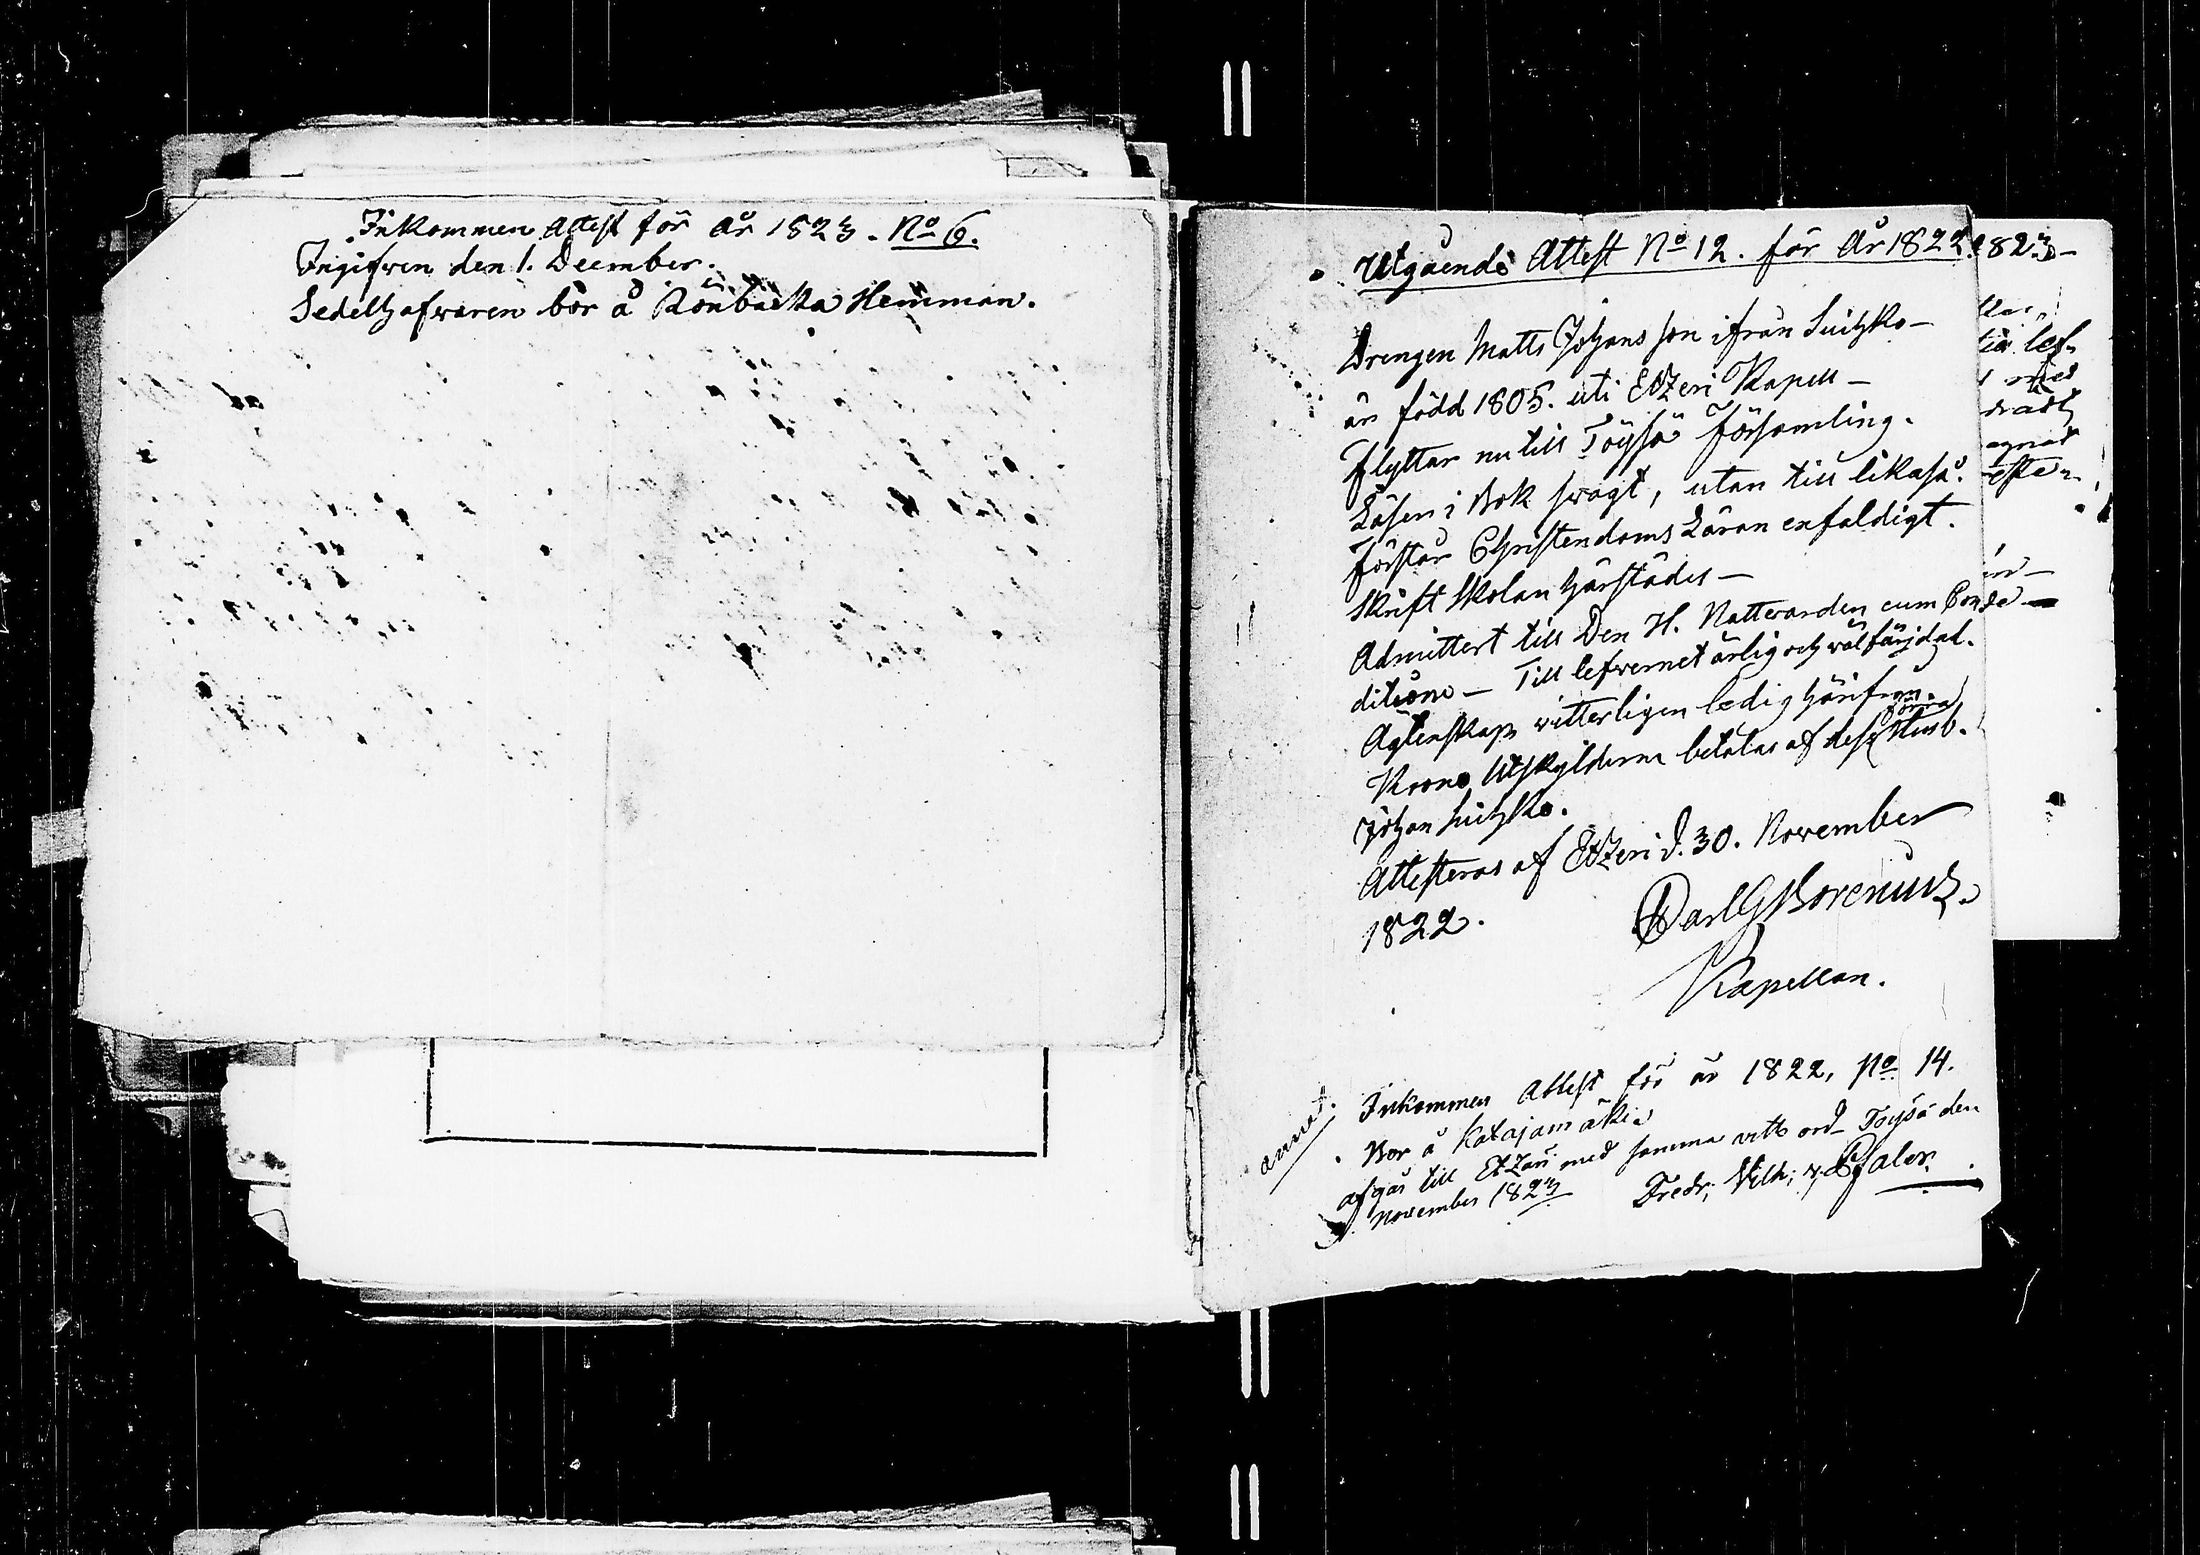 Inkommen Attest för år 1823. No 6.
Ingifwen den 1. December.
Sedelhafwaren bor å Rönbacka Hemman.
Utgående Attest No 12. för År 1822.
1823-
Drengen Matts Johans son ifrån
är född 1805. uti Etzeri Kapell -
flyttar nu till Töysä Församling.
Läser i Bok swagt, utan till likaså.
Förstår Christendoms Läran enfaldigt.
Skrift Skolan härstädes -
Admittert till Den H. Nattwarden cum Con
ditione - Till lefwernet ärlig och wälfärjdad.
Ägtenskap witterligen ledig härifrån.
Krono Utskylderne betalas af dess förra Husb.
Johan
Attesteras af Etzeri d. 30. November
1822.
Carl G Borenius.
Kapellan.
Inkommen Attest för år 1822, No 14.
Bor å Katajamäki
afgår till Etzäri med samma vitts ord Töysä den
November 1823
Fredr; Vilh;
lef-
med